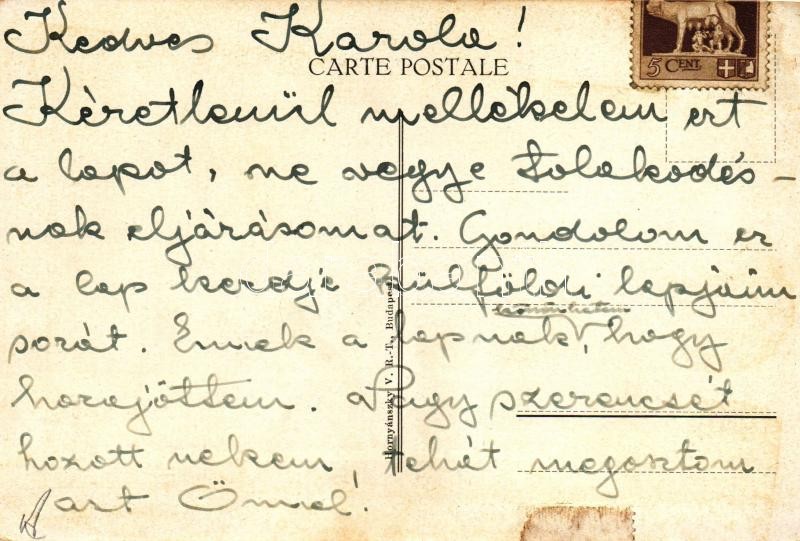 Kedves Karola!
5 CENT.
CARTE POSTALE
Kéretlenül mellékelem ezt
a lapot, ne vegye tolakodás-
nak eljárásomat. Gondolom ez
a lap kezdje külföldi lapjaim
köszönhetem
sorát. Ennek a lapnak, hogy
hazajöttem. Nagy szerencsét
hozott nekem, tehát megosztom
azt Önnel!
Hornyánszky V. R.-T., Budapest